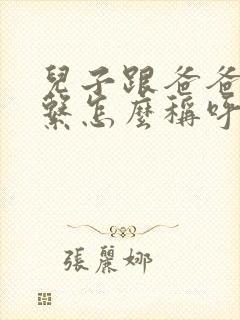 兒子跟爸爸
繫怎麼稱呼
張麗娜